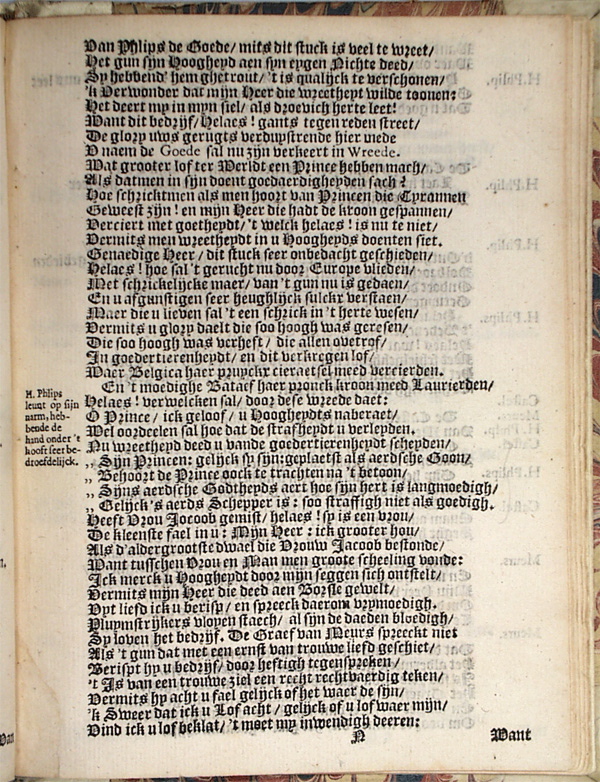 Van Phlips de Goede/ mits dit stuck is veel te wreet/
Het gun sijn Hoogheyd aen syn eygen Nichte deed/
Sy hebbend' hem ghetrout/ 't is qualijck te verschonen/
'k Verwonder dat mijn Heer die wreetheyt wilde toonen:
Het deert my in myn siel/ als droevich herte leet!
Want dit bedrijf/ Helaes! gants tegen reden street/
De glory uws gerugts verduystrende hier mede
U naem de Goede sal nu zijn verkeert in Wreede.
Wat grooter lof ter Werldt een Prince hebben mach/
Als datmen in sijn doent goedaerdigheyden sach?
Hoe schricktmen als men hoort van Princen die Tyrannen
Geweest zijn! en mijn Heer die hadt de kroon gespannen/
Verciert met goetheydt/ 't welck helaes! is nu te niet/
Dermits men wreetheydt in u Hoogheyds doenten siet.
Genaedige Heer/ dit stuck seer onbedacht geschieden/
Helaes! hoe sal 't gerucht nu door Europe vlieden/
Met schrickelijcke maer/ van 't gun nu is gedaen/
En u afgunstigen seer heughlijck sulckx verstaen/
Maer die u lieven sal 't een schrick in 't herte wesen/
Vermits u glory daelt die soo hoogh was geresen/
Die soo hoogh was verheft/ die allen overtrof/
In goedertierenheydt/ en dit verkregen lof/
Waer Belgica haer pruyckx cieraetsel meed vercierden.
En 't moedighe Bataef haer pronck kroon meed Laurierden/
H. Phlips
leunt op sijn
narm, heb-
bende de
hand onder 't
hooft seer be-
droefdelijck.
Helaes! verwelcken sal/ door dese wreede daet:
O Prince/ ick geloof/ u Hoogheydts naberaet/
Wel oordeelen sal hoe dat de strafheydt u verleyden.
Nu wreetheyd deed u vande goedertierenheydt scheyden/
„ Sijn Princen: gelijck sy sijn: geplaetst als aerdsche Goon/
„ Behoort de Prince oock te trachten na 't betoon/
„ Sijns aerdsche Godtheyds aert hoe sijn hert is langmoedigh/
„ Gelijck 's aerds Schepper is: soo straffigh niet als goedigh.
Heeft Vrou Jacoob gemist/ helaes! sy is een vrou/
De kleenste fael in u: Mijn Heer: ick grooter hou/
Als d'aldergrootste dwael die Vrouw Jacoob bestonde/
Want tusschen Vrou en Man men groote scheeling vonde:
Ick merck u Hoogheydt door mijn seggen sich ontstelt/
Dermits mijn Heer die deed aen Borsle gewelt/
Uyt liefd ick u berisp/ en spreeck daerom vrymoedigh.
Pluymstrijkers vloyen staech/ al sijn de daeden bloedigh/
Sy loven het bedrijf. De Graef van Meurs spreeckt niet
Als 't gun dat met een ernst van trouwe liefd geschiet/
Berispt hy u bedrijf/ door heftigh tegenspreken/
't Is van een trouwe ziel een recht rechtvaerdig teken/
Vermits hy acht u fael gelijck of het waer de sijn/
'k Sweer dat ick u Lof acht/ gelijck of u lof waer mijn/
Vind ick u lof beklat/ 't moet my inwendigh deeren:
N Want